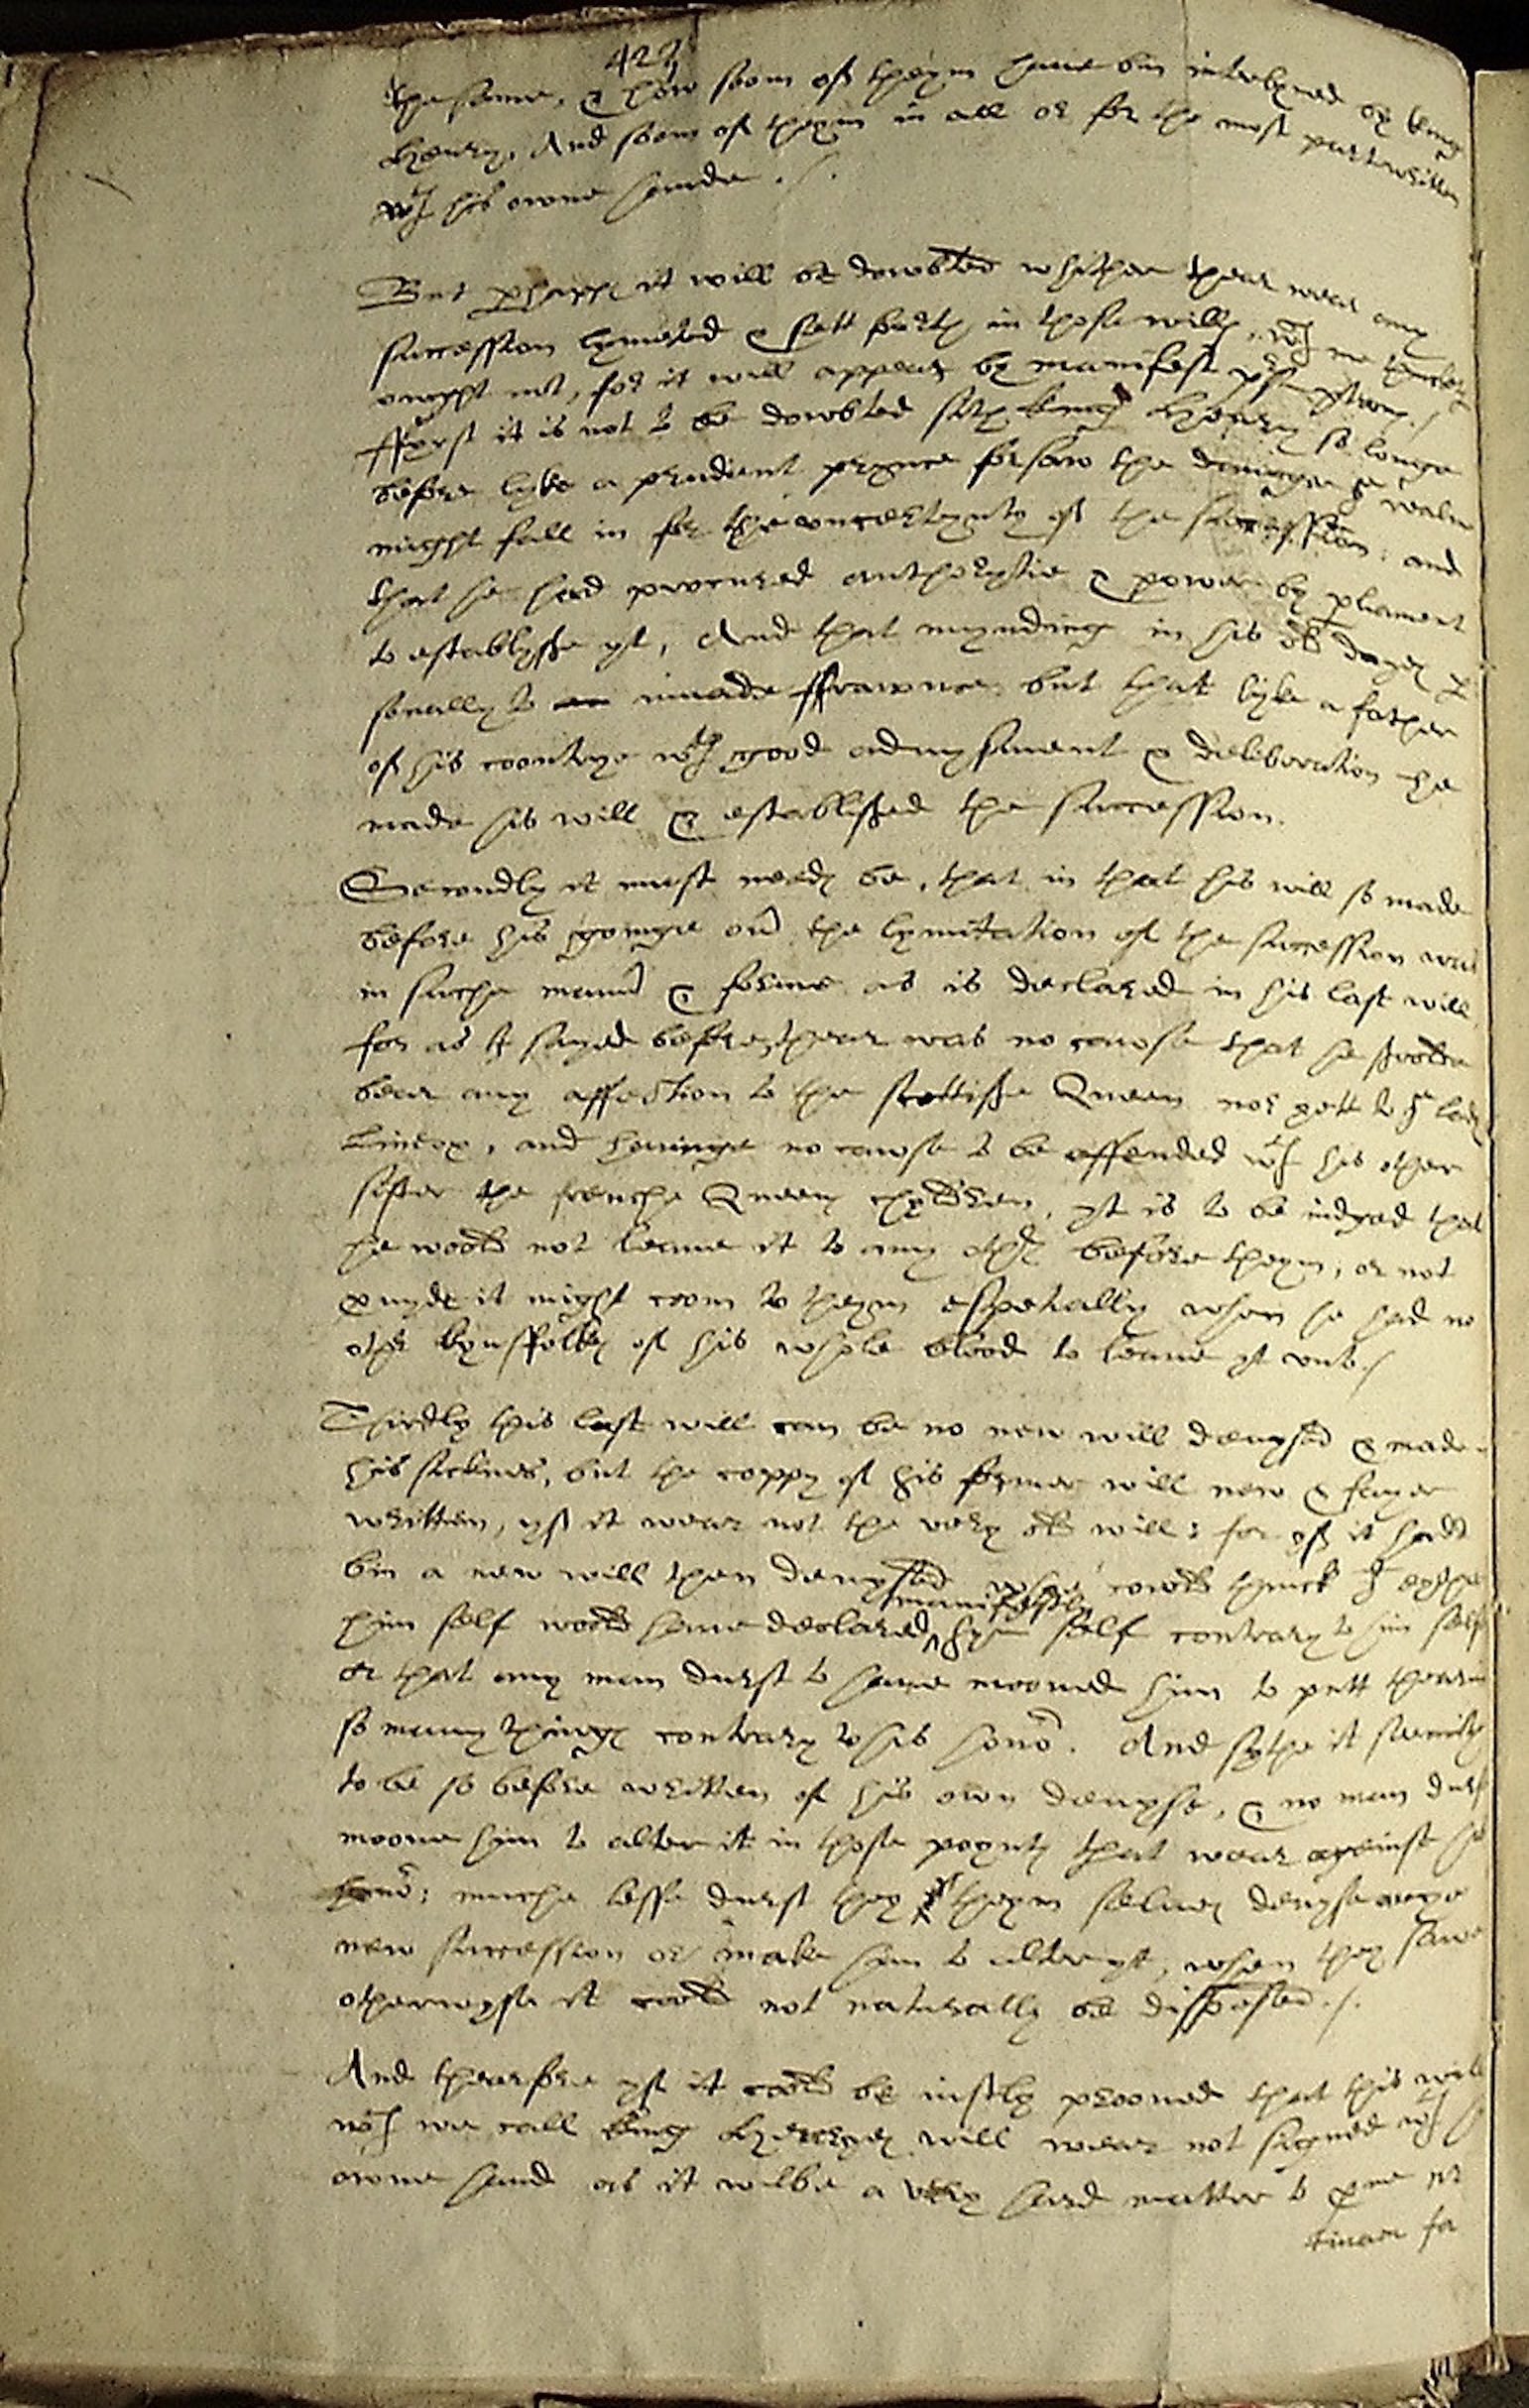 422
the same, & how soom of theym have bin interlyned by king
Henry, And soom of theym in all or for the most part written
wth his owne hande ./.
But phapps it will be dowbted whither thear wear any
succession lymeted & sett forth in those wills, wch me thinketh
owght not, for it will appear by manifest
ffyrst it is not to be dowbted sith king Henry so longe
before lyke a prudent prynce forsaw the dainger ye realm
might fall in for the uncerteynty of the succession: and
that he had procured authorytie & power by pliament
to establysshe yt, And that mynding in his old dayes p
sonally to invade ffrawnce but that lyke a father
of his coontrye wth good advysement & deliberation he
made his will & establisshed the succession.
Secondly it must needs be, that in that his will so made
before his goinge ovr the lymitation of the succession was
in suche mannr & forme as is declared in his last will
for as I sayed before, thear was no cawse that he shoold
bear any affection to the scottisshe Queen nor yett to ye lady
Lineox, and havinge no cawse to be offended wth his other
sister the frenche Queens chyldren, yt is to be iudged that
he woold not leave it to any othr before theym, or not
pvyde it might coom to theym espetially when he had no
othr kynsfolks of his whole blood to leave yt unto ./
Thirdly this last will can be no new will devysed & made
his sicknes, but the coppy of his former will new & fayer
written, yf it wear not the very old will: for yf it hadd
bin a new will then devysed, who cowld thinck yt eyther
him self woold have declared manifestly hym self contrary to him self
or that any man durst to have mooved him to putt thearin
so many things contrary to his honor. And sythe it seemith
to be so before written of his own devyse, & no man durst
moove him to alter it in those poynts that wear against his
honor; muche lesse durst they theym selves devyse anye
new succession or make him to alter yt, when they sawe
otherwyse it coold not naturally be disposed ./.
And thearfore yf it coold be iustly prooved that this will
wch we call king Henryes will wear not signed wth his
owne hand as it wilbe a very hard matter to pve